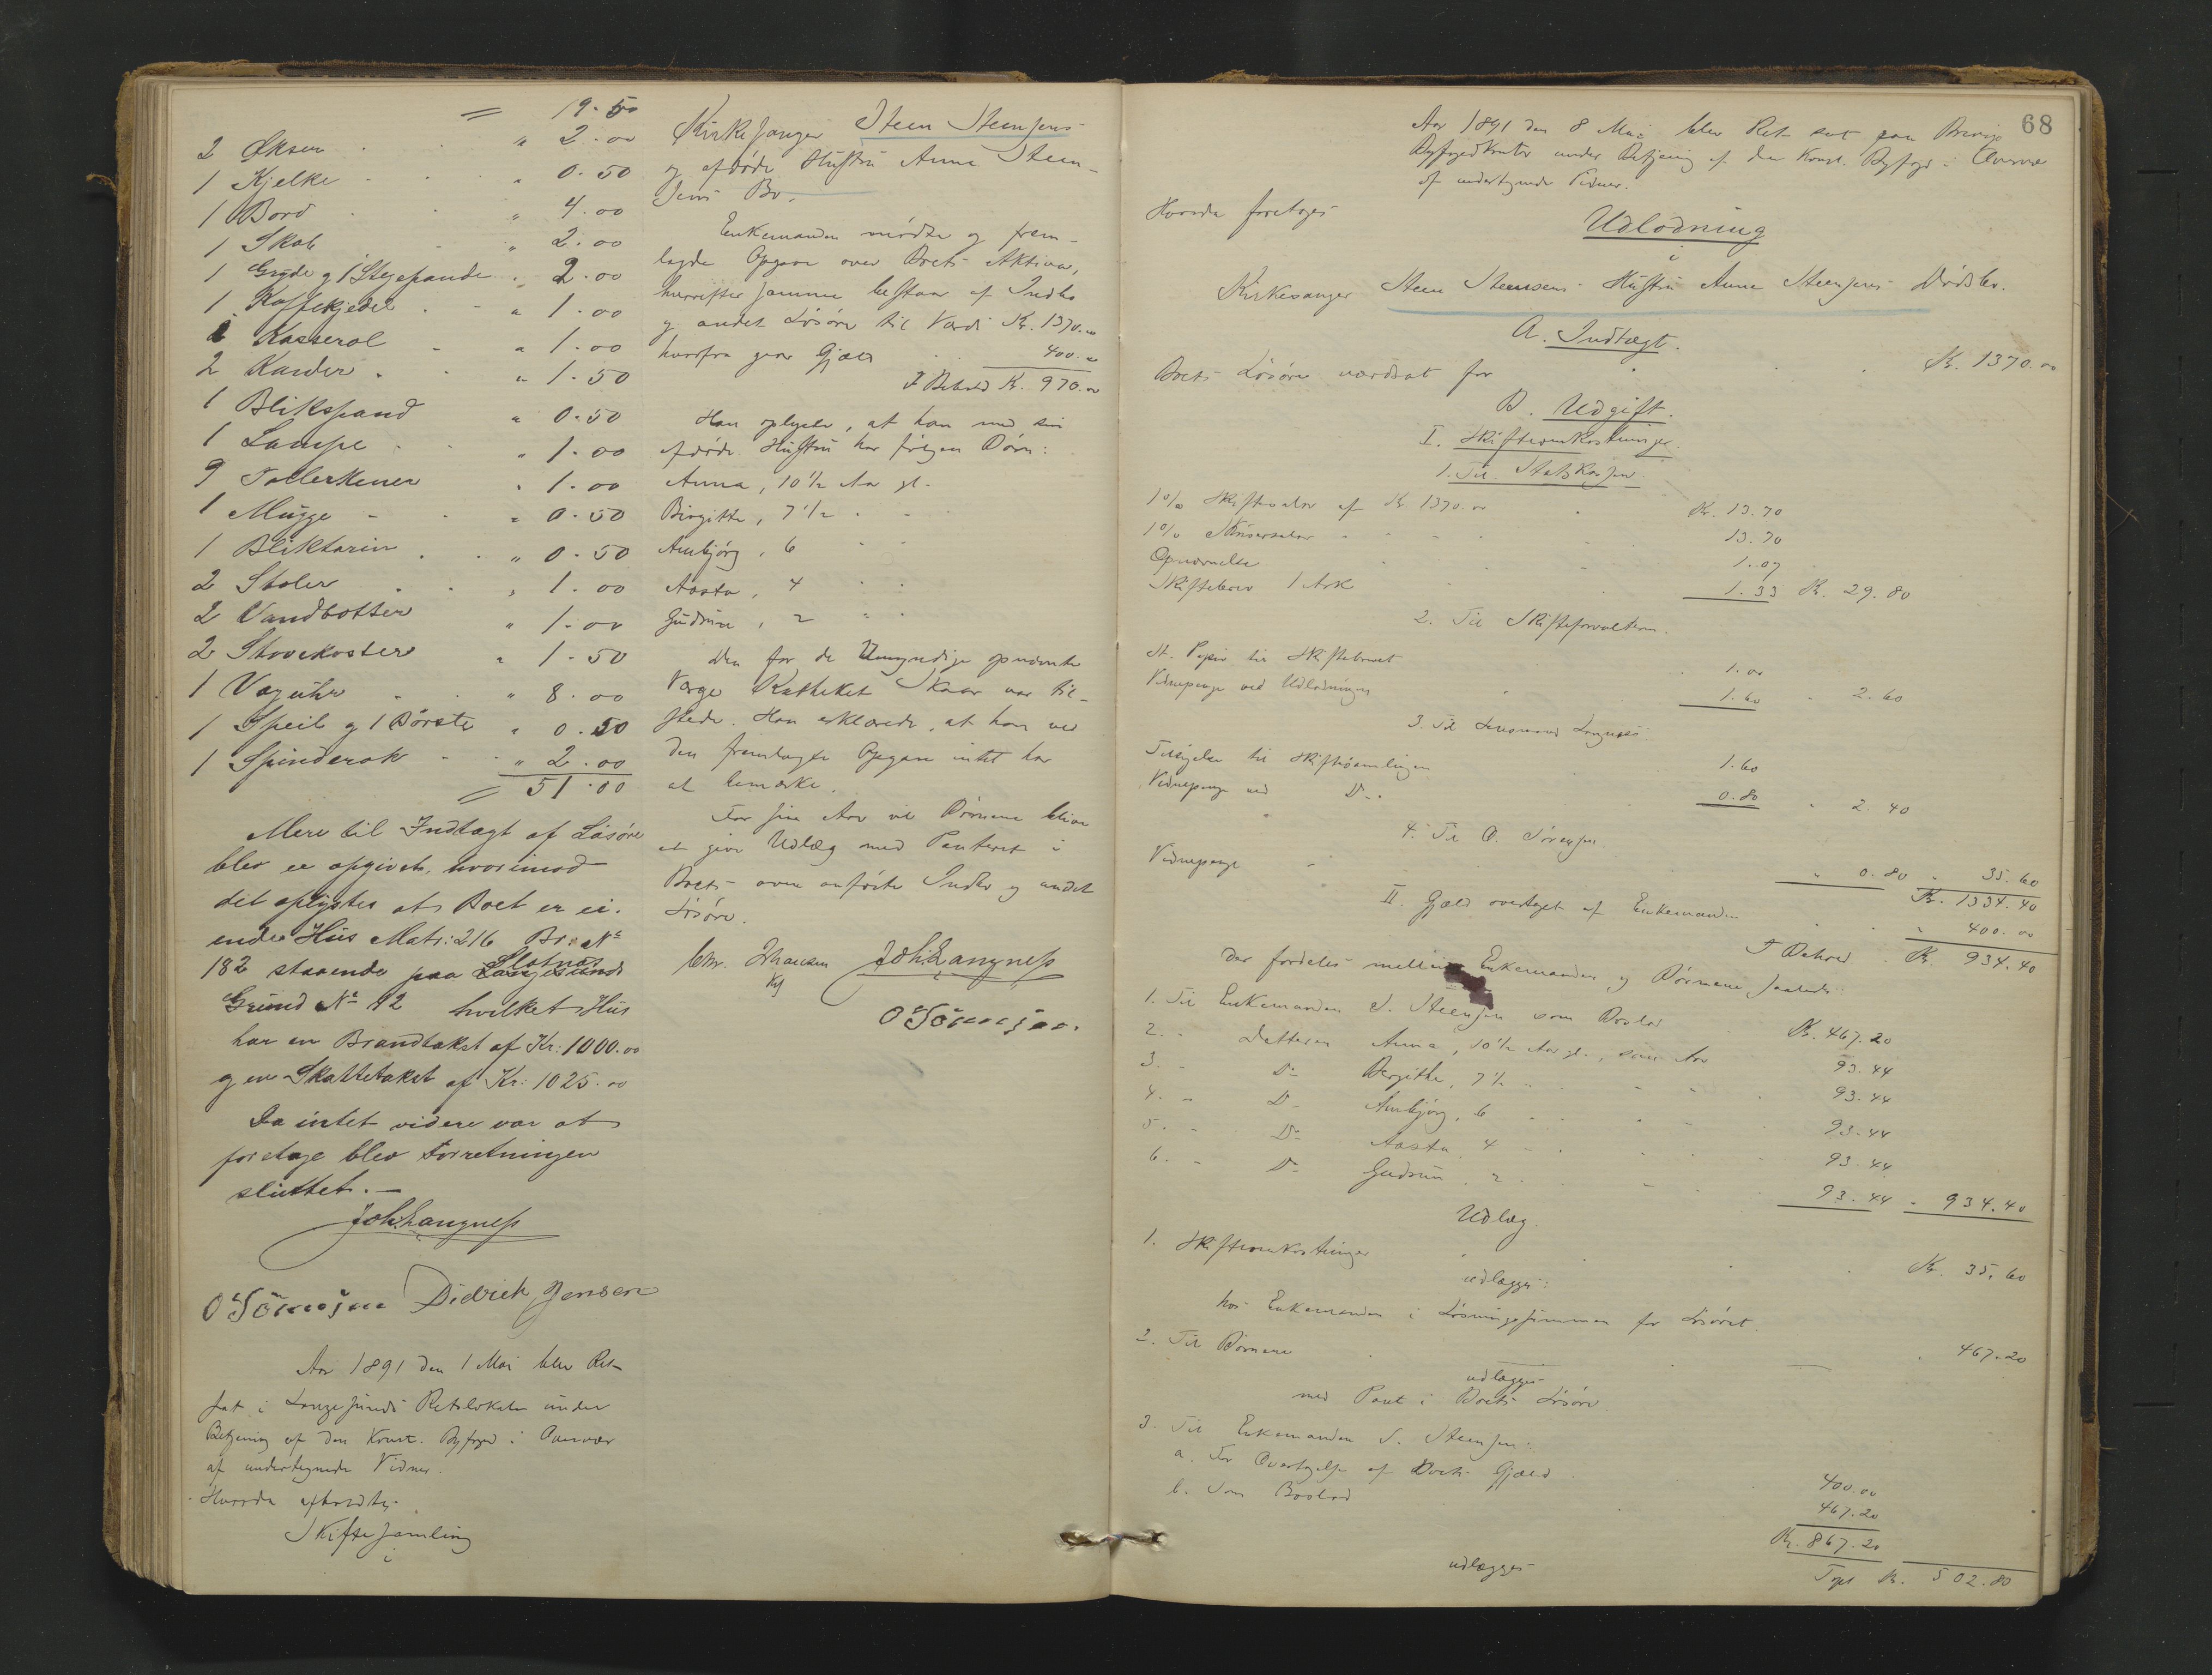 〃 19.50
2 Økser " 2.00
1 Kjelke " 0.50
1 Bord " 4.00
1 Skab " 2.00
1 Gryde og 1 Stegepande " 2.00
1 Kaffekjedel " 1.00
1 Kasserol " 1.00
2 Karder " 1.50
1 Blikspand " 0.50
1 Lampe " 1.00
9 Tallerkener " 1.00
1 Mugge " 0.50
1 Bliktarin " 0.50
2 Stoler " 1.00
2 Vandbøtter " 1.00
2 Stovekoster " 1.50
1 Væguhr " 8.00
1 Speil og 1 Børste " 0.50
1 Spinderok " 2.00
〃 51.00
Mere til Indtægt af Løsøre
blev ei opgivet, hvorimod
det oplystes at Boet er ei-
ende Hus Matr: 216 Br: No
182 staaende paa Langesunds Slotnæs
Grund No 12 hvilket Hus
har en Brandtakst af Kr: 1000.00
og en Skattetakst af Kr: 1025.00
Da intet videre var at
foretage blev Forretningen
sluttet.—
Joh Langness
O Sörensen Didrich Jensen
Aar 1891 den 1 Mai blev Ret
sat i Langesunds Retslokale under
Betjening af den Konst. Byfoged i Overvær
af undertegnede Vidner.
Hvorda afholdtes
Skiftesamling
i
Kirkesanger Steen Steensens
og afdøde Hustru Anne Steen-
sens Bo.
Enkemanden mødte og frem-
lagde Opgave over Boets Aktiva,
hvorefter samme bestaar af Indbo
og andet Løsøre til Værdi Kr. 1370.00
hvorfra gaar Gjæld 400.00
I Behold Kr. 970.00
Han oplyste, at han med sin
afdøde Hustru har følgen Børn:
Anna, 10 1/2 Aar gl.
Birgitte, 7 1/2 " "
Anbjørg, 6 " "
Aasta, 4 " "
Gudrun, 2 " "
Den for de Umyndige opnævnte
Værge Katheket Skaar var til-
stede. Han erklærede, at han ved
den fremlagte Opgave intet har
at bemærke.
For sin Arv vil Børnene blive
at give Udlæg med Panteret i
Boets oven anførte Indbo og andet
Løsøre.
Joh Langness
O Sörensen.
68
Aar 1891 den 8 Mai blev Ret sat paa Brevig
Byfogedkontor under Betjening af den Konst. Byfogd i Overvær
af undertegnede Vidner.
Hvorda foretoges
Udlodning
i
Kirkesanger Steen Steensens Hustru Anne Steensens Dødsbo.
A. Indtægt.
Boets Løsøre værdsat for Kr. 1370.00
B. Udgift.
I. Skifteomkostninger.
1. Til Statskassen.
1% Skifteafr af Kr 1370.00 Kr. 13.70
1% " " " 13.70
Opnævnelse 1.07
Skiftebrev 1 Ark 1.33 Kr. 29.80
2. Til Skifteforvalteren.
St. Papir til Skiftebrevet 1.00
Vidnepenge ved Udlodningen 1.60 " 2.60
3. Til Langness
Tilsigelse til Skiftesamlingen 1.60
Vidnepenge ved Do. 0.80 " 2.40
4. Til O. Sørensen.
Vidnepenge " 0.80 " 35.60
Kr. 1334.40
II. Gjæld overtaget af Enkemanden " 400.00
I Behold Kr. 934.40
der fordeles mellem Enkemanden og Børnene saaledes:
1. Til Enkemanden S. Steensen som Boslod Kr. 467.20
2. - Datteren Anna, 10 1/2 Aar gl., som Arv 93.44
3. - Do Bergithe, 7 1/2 " " 93.44
4. - Do Anbjørg, 6 " " 93.44
5. - Do Aasta 4 " " 93.44
6. - Do Gudrun 2 " " 93.44 - 934.40
Udlæg.
1. Skifteomkostninger Kr. 35.60
udlægges:
hos Enkemanden i Løsningssummen for Løsøret.
2. Til Børnene " 467.20
udlægges
med Pant i Boets Løsøre.
3. Til Enkemanden S. Steensen:
a. For Overtagelse af Boets Gjæld 400.00
b. Som Boslod 467.20
Kr. 867.20
udlægges
Kr. 502.80